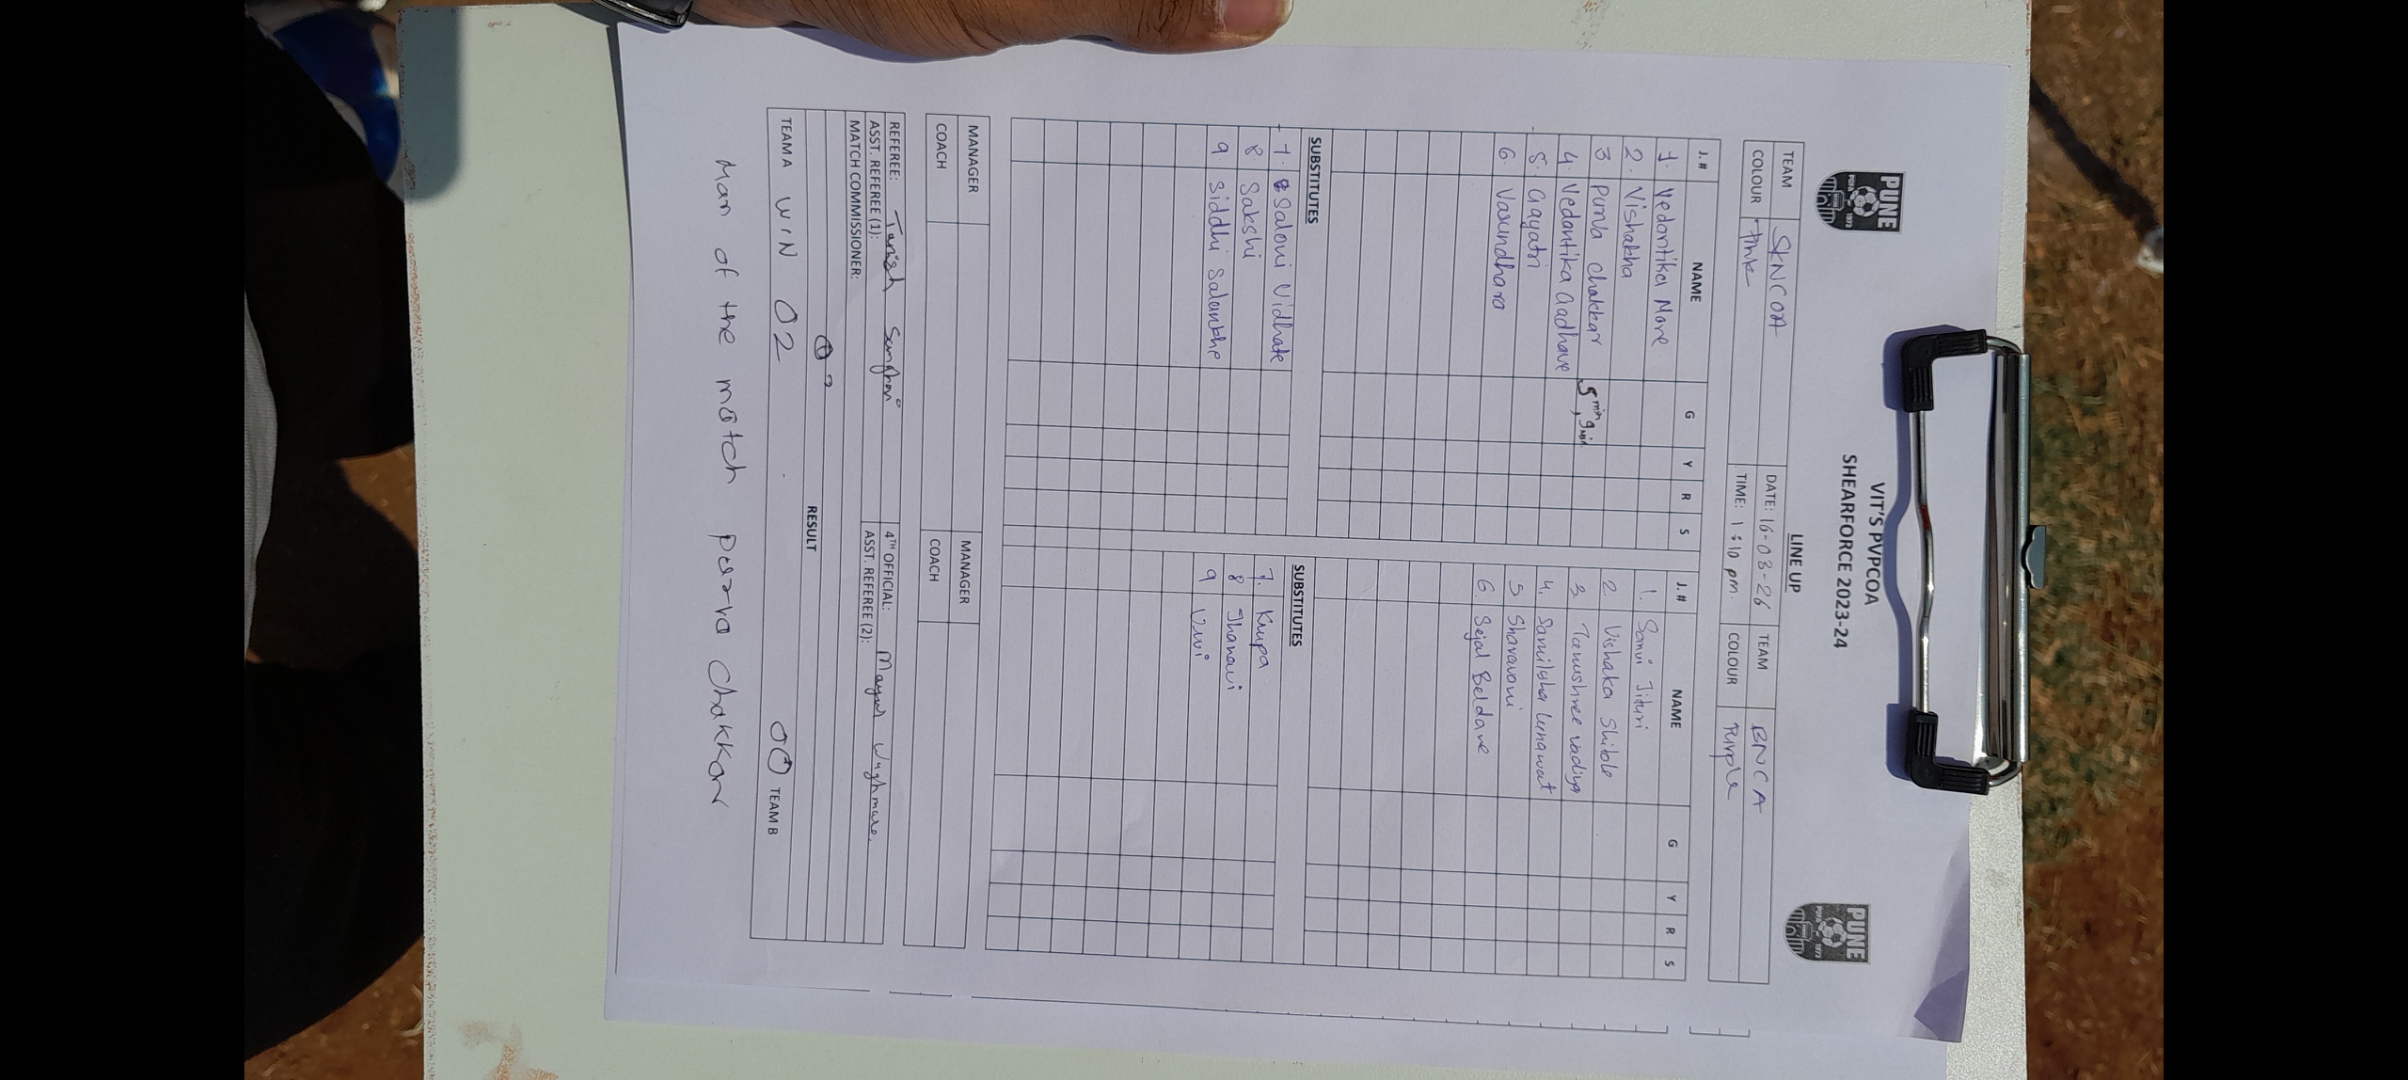 VIT'S PVPCOA
SHEARFORCE 2023-24
PUNE
PUNE
LINE UP
TEAM SKNCOA DATE: 16-03-26 TEAM BNCA
COLOUR Pink TIME: 1:10 pm. COLOUR Purple
J.# NAME G Y R S J.# NAME G Y R S
1. Vedantika More 1. Sanvi Jituri
2. Vishakha 2 Vishaka Shibole
3. Purva Chakkar 5 min, 9 min. 3 Tanushree vadiya
4. Vedantika Aadhave 4. Samiksha Lunawat
5. Gayatri 5 Sharavani
6. Vasundhara 6. Sejal Beldare
SUBSTITUTES SUBSTITUTES
7. Saloni Vidhate 7. Krupa
8. Sakshi 8 Jhanavi
9. Siddhi Salunkhe 9
MANAGER MANAGER
COACH COACH
REFEREE: Tanish 4TH OFFICIAL: Mayur Waghmare.
ASST. REFEREE (1): ASST. REFEREE (2):
MATCH COMMISSIONER:
RESULT
TEAM A WIN 02 00 TEAM B
Man of the match purva Chakkar